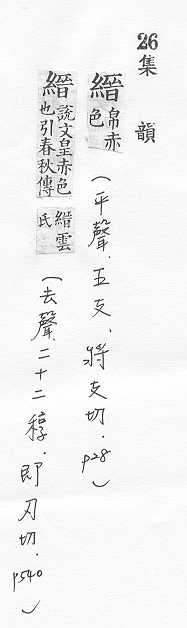 26集韻
縉帛赤色(平聲.五支、將支切.p28)
縉說文皇赤色也引春秋傳縉雲氏(去聲.二十二稕.即刃切.p540)